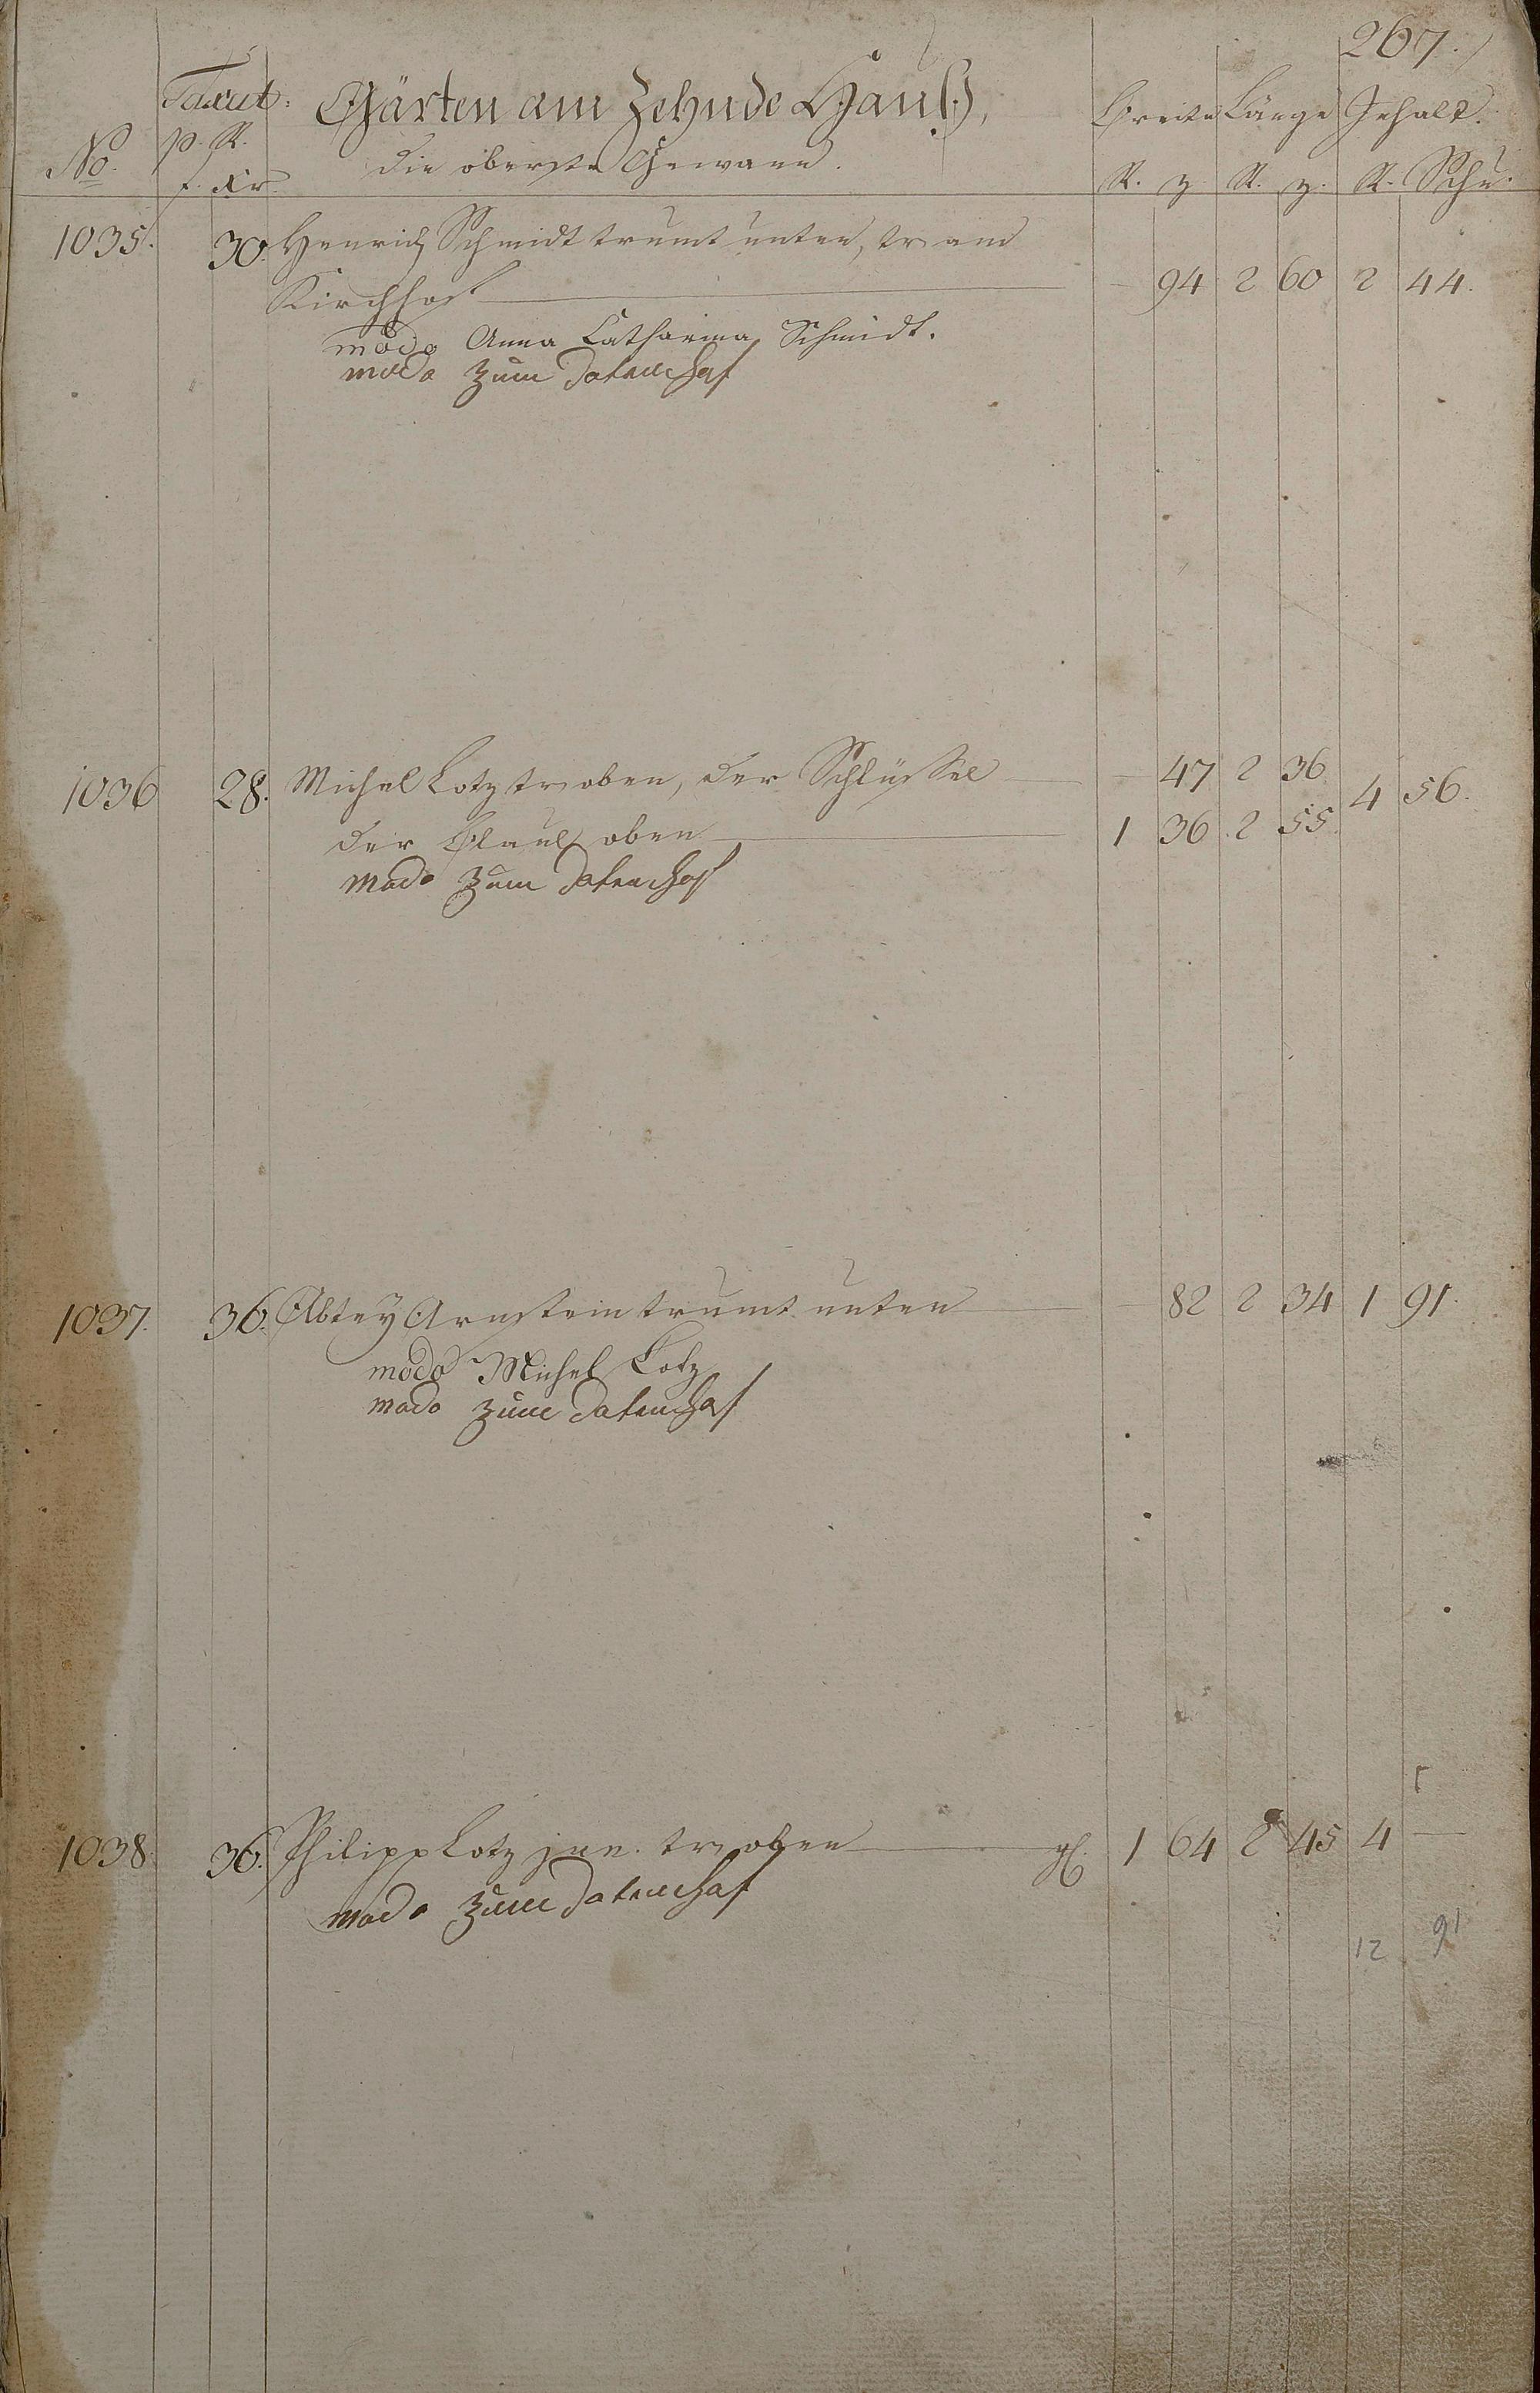 267.
Taxat: Gärten am Zehnde Hauß, Breite Länge Inhalt.
No. p. R. die oberste Gewann.
f. Xr. R. z. R. z. R. Schu.
1035. 30. Henrich Schmidt trumt unten, tr. am
Kirchhoff — 94 2 60 2 44.
modo Anna Catharina Schmidt.
modo zum Todtenhof
1036 28. Michel Lotz tr. oben, der Schlüssel — 47 2 36 4 56.
der oben 1 36 2 55.
modo zum Todtenhof
1037. 36. Abtey Arnstein trumt unten 82 2 34 1 91.
modo Michel Lotz
modo zum Todtenhof
1038. 36. Philipp Lotz jun. tr. oben gl. 1 64 2 45 4 —
modo zum Todtenhof
12 91